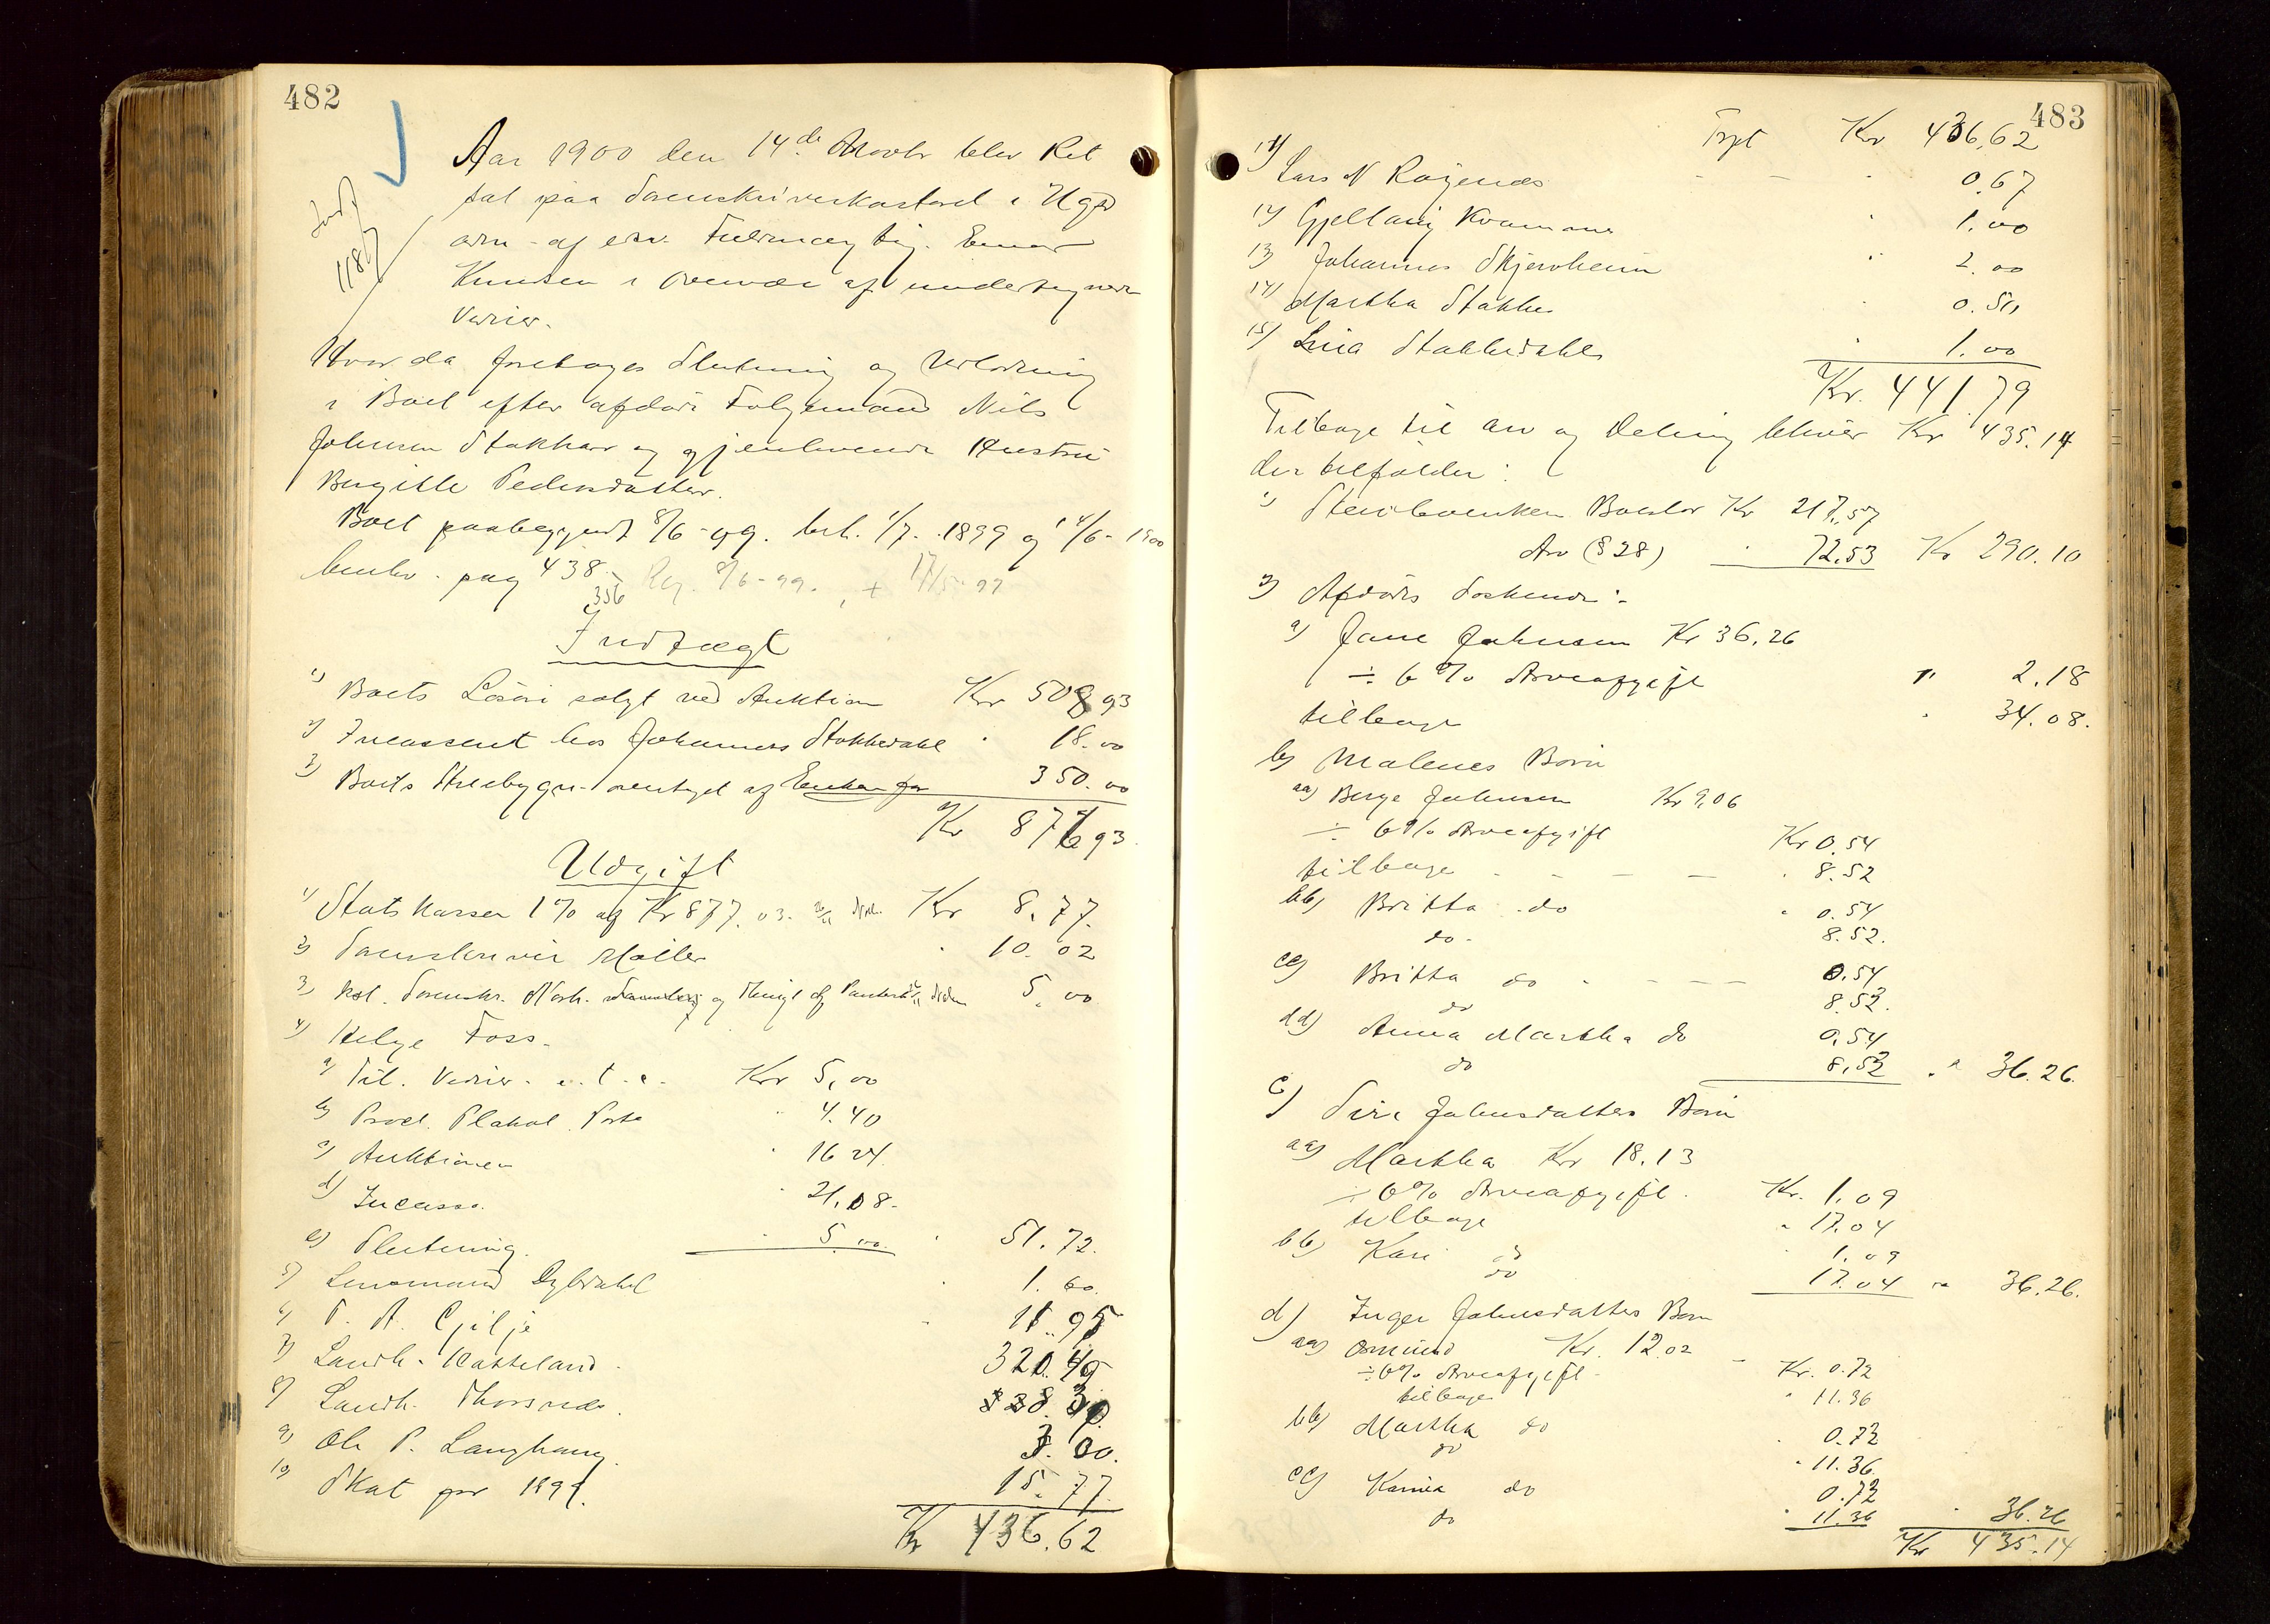 482
Aar 1900 den 14de Novbr blev Ret
sat paa Sorenskriverkontoret i
af edsv. Fuldmægtig Einar
Knudsen i Overvær af undertegnede
Vidner.
Hvor da foretoges Slutning og Udlodning
i Boet efter afdøde Folgemand Nils
Johnsen Stokka og gjenlevende Hustru
Birgitte Pedersdatter.
Boet paabegyndt 8/6-99. beh. 1/7-1899 og 14/6-1900
pag 438
356 Reg. 8/6-99. + 17/5-99
Indtægt
1) Boets Løsøre solgt ved Auktion Kr 508 93
2) Incasseret hos Johannes Stokkedahl " 18.00
3) Boets overtaget af Enken for 350.00
Kr 876 93
Udgift
1) Statskassen 1% af Kr 877.03. Kr 8.77.
2) Sorenskriver Møller " 10.02
3) Kst. Sorenskr. og 5.00
4) Helge Foss.
a) Til. Vidner. Kr 5,00
b) Procl. Plakat. Porto " 4.40
c) Auktionen " 16 24
d) Incasso. " 21,08.
e) Slutning. " 5.00. " 51.72.
5) Lensmand 1.60.
6) P. A. Gilje 11.95
7) Landh. Hatteland. 320.49
8) Landh. Thorsnes. 8.30
9) Ole P. Langhaug. 3.00.
10) Skat for 1899. 15.77.
Kr 436.62
483
Kr 436,62
11) Lars N Røgenes 0.67
12) Kvamme 1.00
13) Johannes Skjervheim " 2.00
14) Martha Stokke 0.50
15) Stokkedahl 1.00
Kr. 441.79
Tilbage til Arv og Deling bliver Kr 435.14
der tilfalder:
1) Stervboenken Boeslod Kr 217,57
Arv (§ 28) " 72.53 Kr 290.10
2) Afdødes Søskende:
a) Johnsen Kr 36.26
÷ 6% Arveafgift " 2.18
tilbage " 34.08.
b) Malenes Børn
aa) Berge Johnsen Kr 9,06
÷ 6% Arveafgift Kr 0.54
tilbage - - - - " 8.52
bb) Britta do " 0.54
do. 8.52.
cc) Britta do - - - - 0.54
do 8.52.
dd) Anna Martha do 0.54
do 8.52 " 36.26.
c) Siri Johnsdatters Børn
aa) Martha Kr 18.13
÷ 6% Arveafgift. Kr. 1.09
tilbage " 17.04
bb) Kari do 1.09
do 17.04 " 36.26.
d) Inger Johnsdatters Børn
aa) Osmund Kr. 12.02
÷ 6% Arveafgift Kr. 0.72
tilbage " 11.36
bb) Martha do 0.72
do " 11.36.
cc) do 0.72
do " 11.36 " 36.26
Kr 435.14